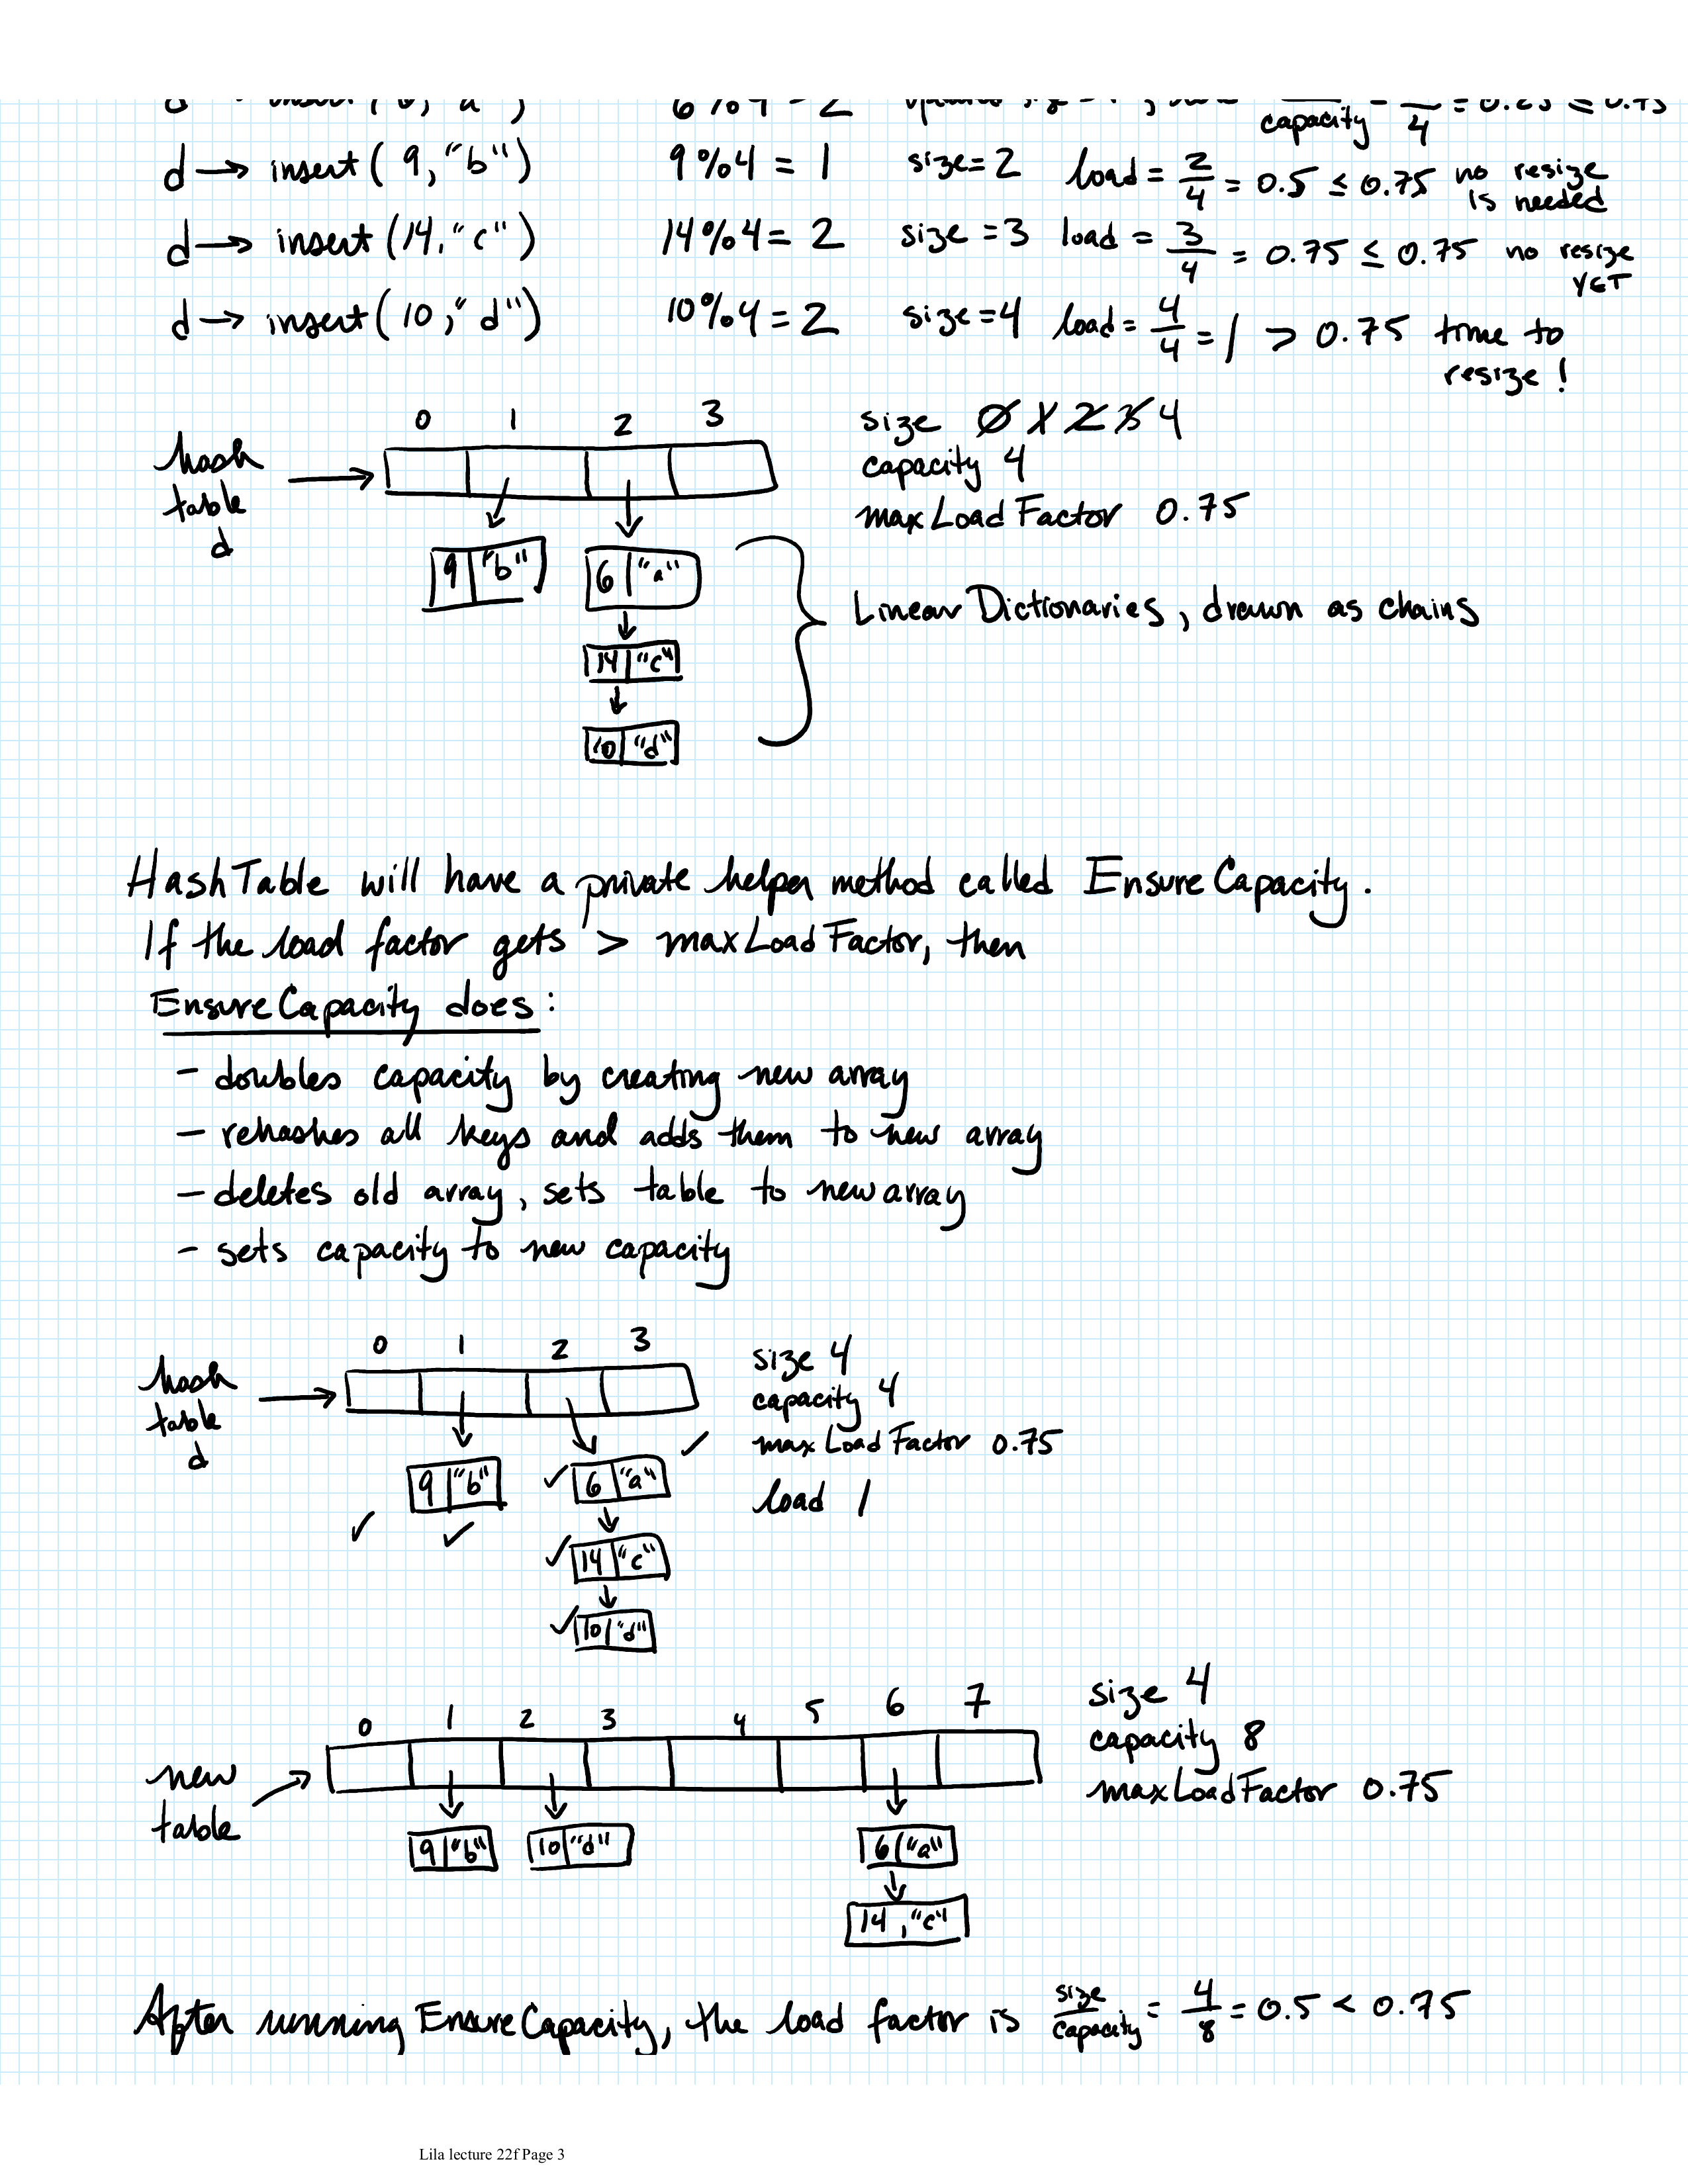 6%4 = 2
capacity 4 = 0.25 ≤ 0.75
d → insert(9,"b") 9%4 = 1 size=2 load = 2/4 = 0.5 ≤ 0.75 no resize is needed
d → insert(14,"c") 14%4 = 2 size=3 load = 3/4 = 0.75 ≤ 0.75 no resize YET
d → insert(10,"d") 10%4 = 2 size=4 load = 4/4 = 1 > 0.75 time to resize!
0 1 2 3
size 0 1 2 3 4
hash table d →
capacity 4
maxLoadFactor 0.75
9 "b" 6 "a"
Linear Dictionaries, drawn as chains
14 "c"
10 "d"
HashTable will have a private helper method called EnsureCapacity.
If the load factor gets > maxLoadFactor, then
EnsureCapacity does:
- doubles capacity by creating new array
- rehashes all keys and adds them to new array
- deletes old array, sets table to new array
- sets capacity to new capacity
0 1 2 3
size 4
hash table d →
capacity 4
max Load Factor 0.75
9 "b" ✓ 6 "a" ✓
load 1
✓ ✓
✓ 14 "c"
✓ 10 "d"
size 4
0 1 2 3 4 5 6 7
capacity 8
new table →
maxLoadFactor 0.75
9 "b" 10 "d" 6 "a"
14, "c"
After running EnsureCapacity, the load factor is size/capacity = 4/8 = 0.5 < 0.75
Lila lecture 22f Page 3